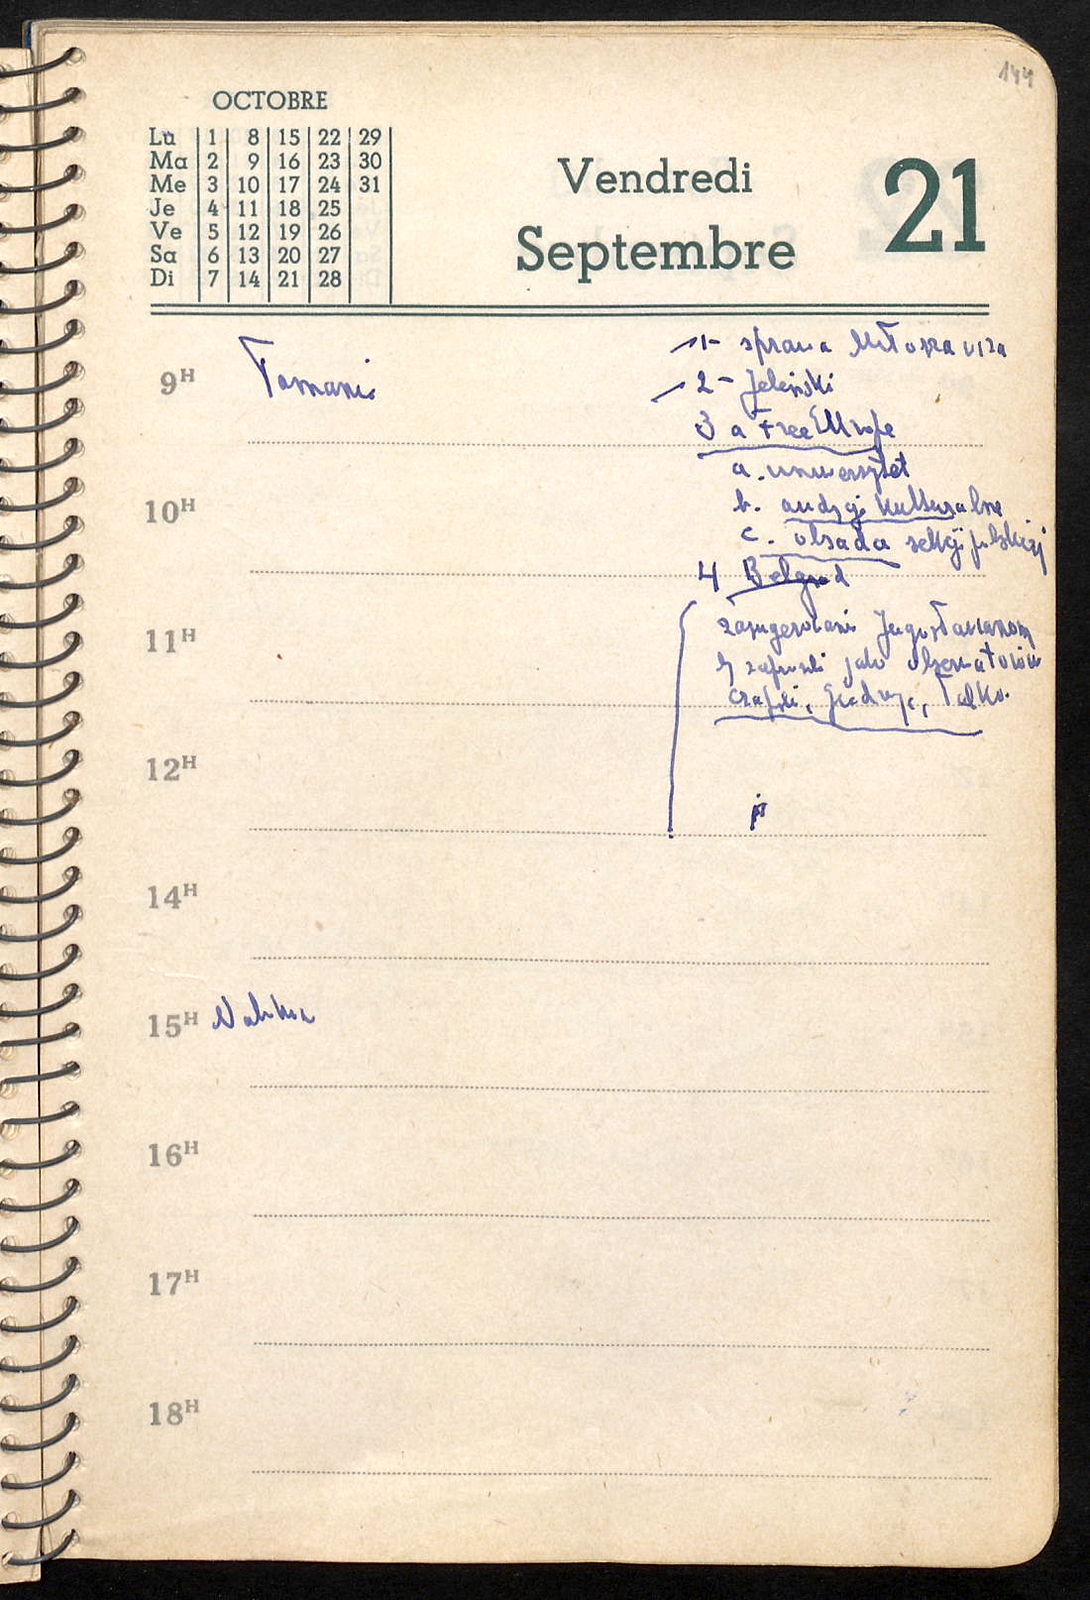 144
OCTOBRE
Lu 1 8 15 22 29
Ma 2 9 16 23 30
Me 3 10 17 24 31
Je 4 11 18 25
Ve 5 12 19 26
Sa 6 13 20 27
Di 7 14 21 28
Vendredi
Septembre
21
9H
1- sprawa Miłosza wiza
2- Jeleński
3 a Free Europe
a. uniwersytet
10H
b. audycji kulturalne
c. obsada sekcji polskiej
4 Belgrad
11H
zasugerowani Jugosławianom
zaprosili jako obserwatorów
Czapski, Giedroyc,
12H
14H
15H
16H
17H
18H